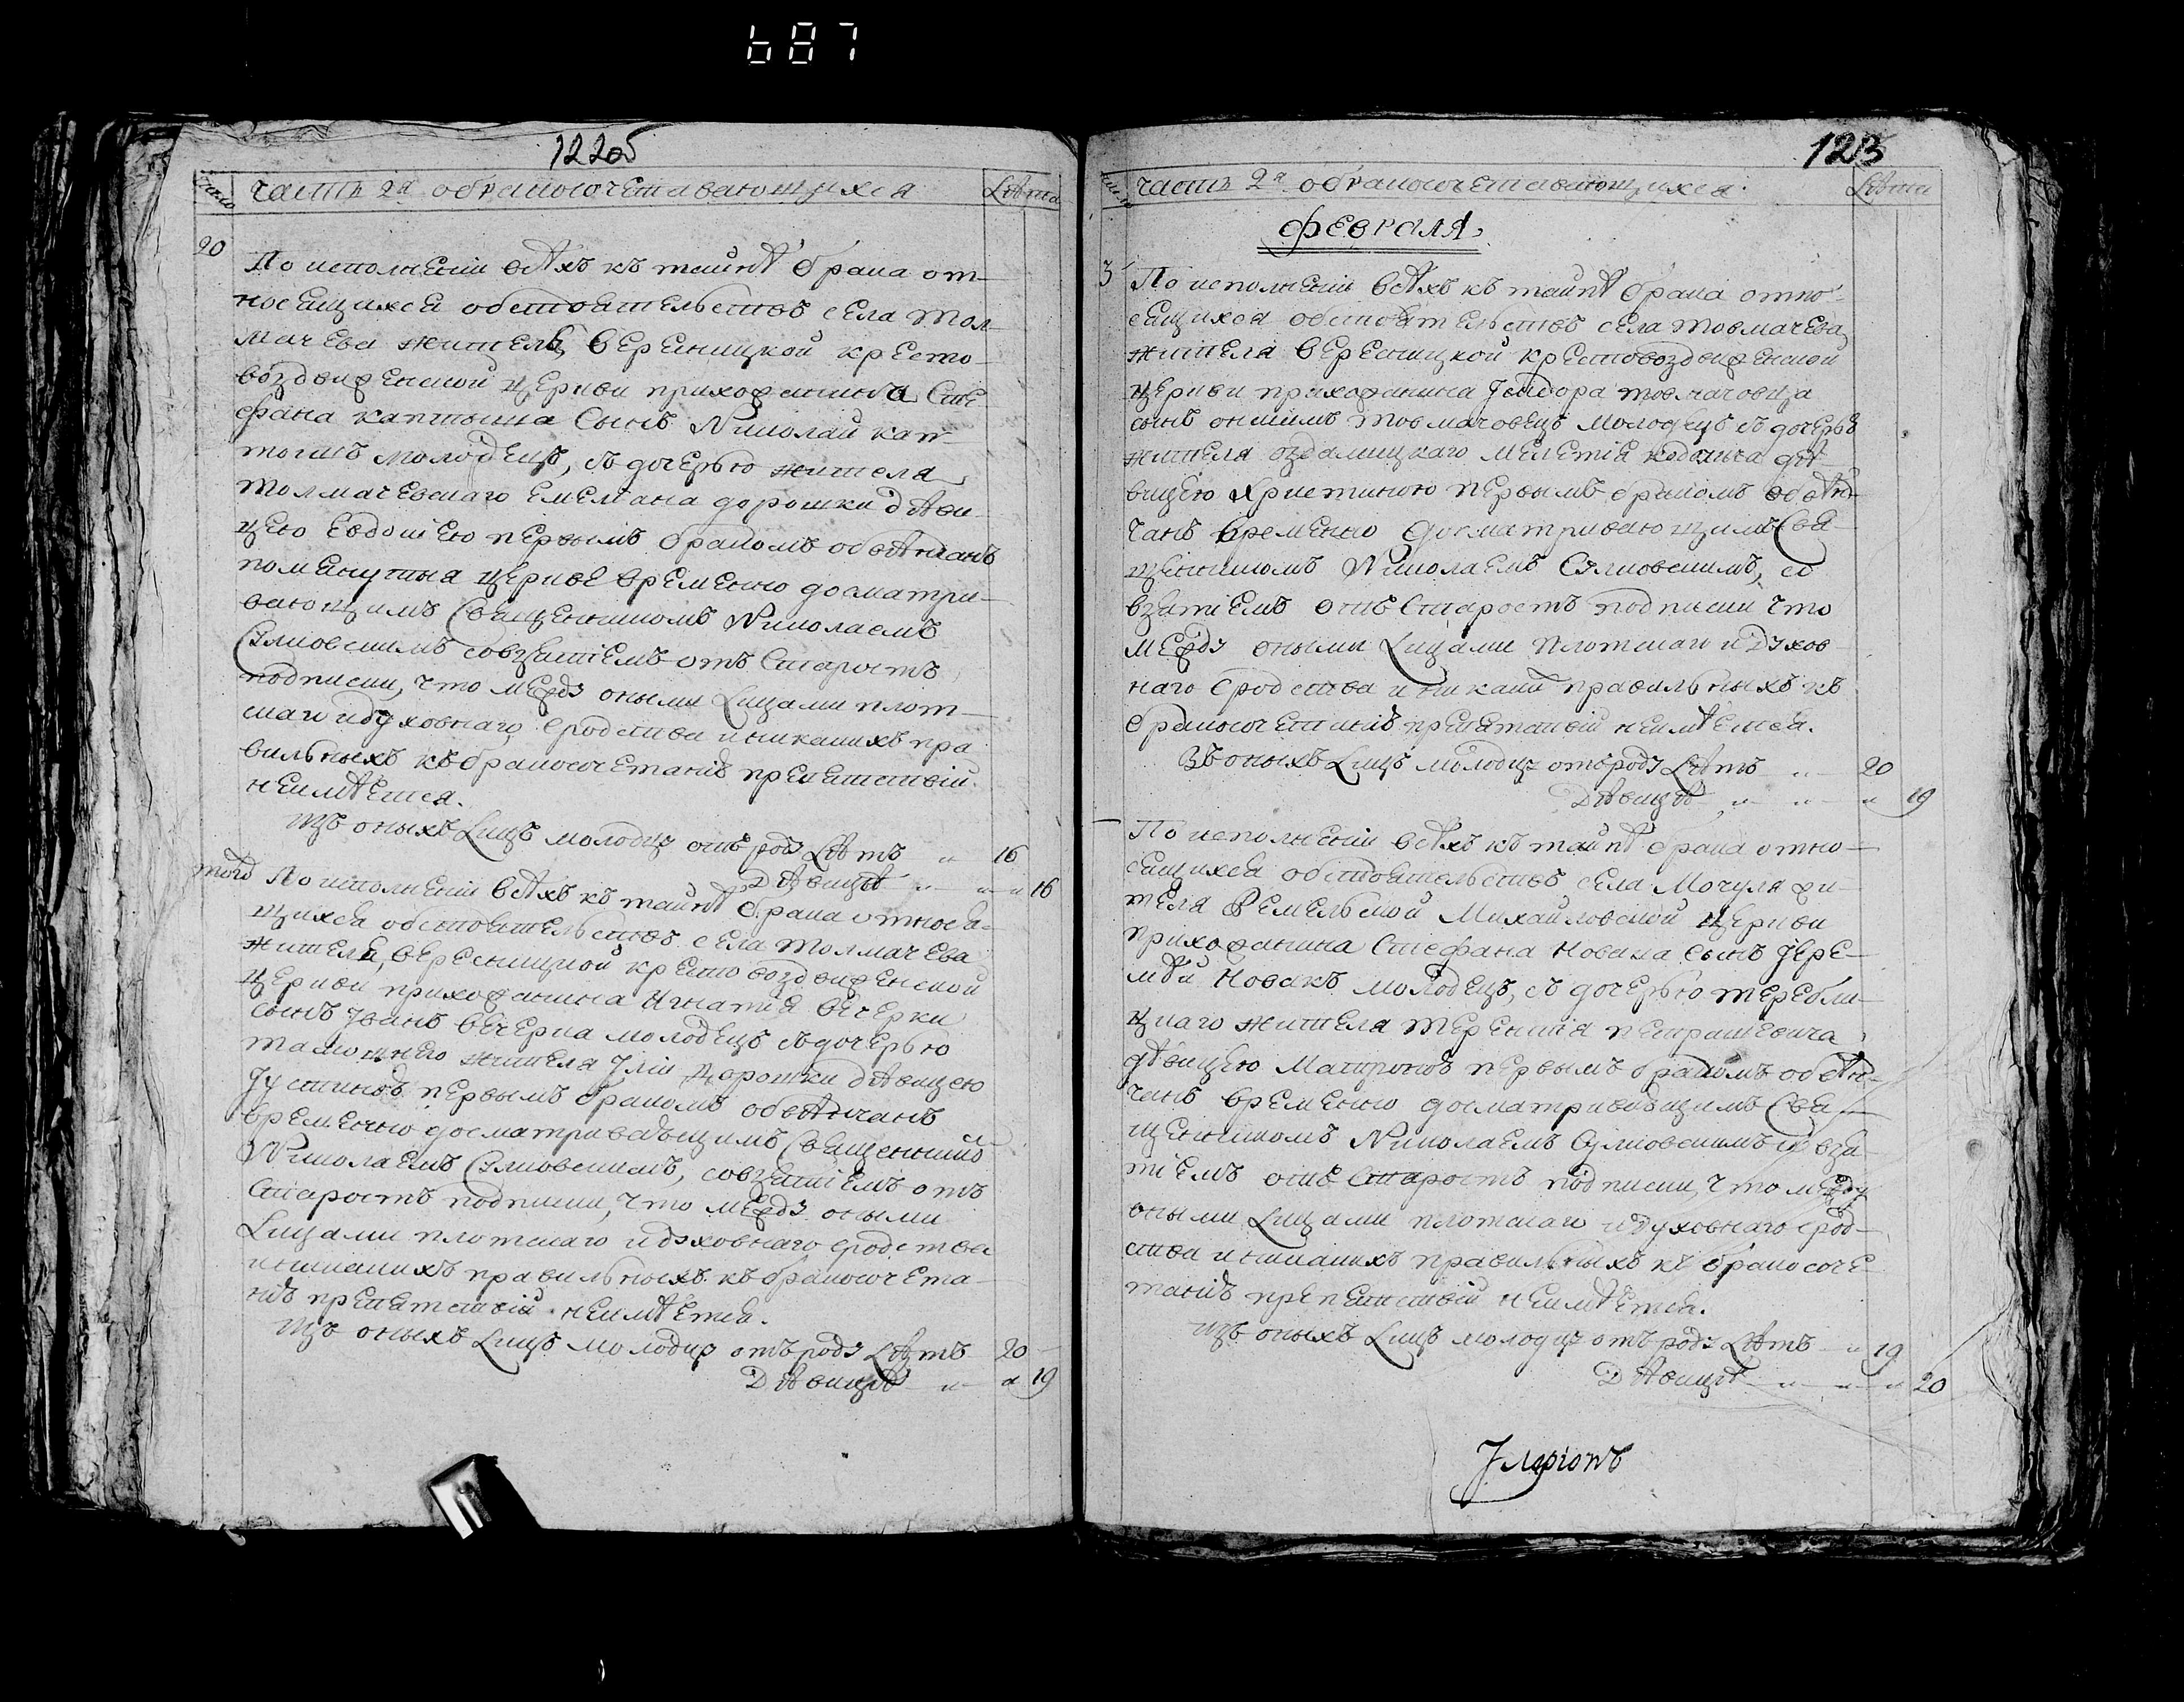 687
122об
число
часть 2я о бракосочетавающихся
Лѣта
20
По исполненіи всѣхъ къ тайнѣ брака от-
носящихся обстоятельствъ села Тол-
мачева жителя, Бересницкой кресто-
воздвиженской церкви прихожанина Сте
фана каптыша Сынъ Николай кап
тошъ молодецъ, съ дочерью жителя
Толмачевскаго Емельяна дорошки дѣви-
цею Евдокіею первымъ бракомъ обвѣнчанъ
помянутыя церкве временно досматри-
вающимъ Священникомъ Николаемъ
совзятіемъ отъ Старостъ
подписки, что междѹ оными Лицами плот-
скаго идуховнаго сродства иникакихъ пра
вильныхъ къ бракосочетанію препятствій
неимѣется.
Изъ оныхъ Лицъ молодцѹ отъ родѹ Лѣтъ „ 16
Дѣвицѣ „ „ „ 16
тогд
По исполненіи всѣхъ къ тайнѣ брака относя-
щихся обстоятельствъ села Толмачева
жителя, Бересницкой кресто воздвиженской
церкви прихожанина Игнатія вечерки
сынъ Іванъ вечерка молодецъ съ дочерью
тамошнего жителя Іліи Дорошки дѣвицею
Іустиною первымъ бракомъ обвѣнчанъ
временно досматривающимъ Священником
Николаемъ совзятіемъ отъ
Старостъ подписки, что междѹ оными
Лицами плотскаго идѹховнаго сродства
иникакихъ правильныхъ къ бракосочета-
нію препятствій неимѣется.
Изъ оныхъ Лицъ молодцѹ отъ родѹ Лѣтъ 20
Дѣвицѣ „ „ 19
123
число
часть 2я о бракосочетавающихся
Лѣта
февраля
3
По исполненіи всѣхъ къ тайнѣ брака отно-
сящихся обстоятельствъ села товмачева
жителя Бересницкой крестовоздвиженской
церкви прихожанина Ісидора товмачовца
сынъ онисимъ товмачовецъ молодецъ съ дочерью
жителя оздамицкаго Мелетія дѣ-
вицею Христиною первымъ бракомъ обвѣн-
чанъ временно досматривающимъ Свя-
щенникомъ Николаемъ со
взятіемъ отъ Старостъ подписки что
междѹ оными Лицами плотскаго идѹхов-
наго сродства иникаких правильныхъ къ
бракосочетанію препятствій неимѣется.
Въ оныхъ Лицъ молодцѹ отъродѹ Лѣтъ „ 20
Дѣвицѣ „ „ „ 19
По исполненіи всѣхъ къ тайнѣ брака отно-
сящихся обстоятельствъ села Мочуля жи-
теля Ремельской Михайловской церкви
прихожанина Стефана Новака Сынъ Іере-
мѣй Новакъ молодецъ, съ дочерью теребли-
цкаго жителя Терентія петрашевича
дѣвицею Матроною первымъ бракомъ обвѣн-
чанъ временно досматривающимъ Свя-
щенникомъ Николаемъ взя
тіемъ отъ Старостъ подписки, что между
оными Лицами плотскаго идуховнаго срод-
ства иникакихъ правильныхъ къ бракосоче
танію препятствій неимѣется.
Изъ оныхъ Лицъ молодцѹ отъ родѹ Лѣтъ „ 19
Дѣвицѣ „ „ „ 20
Іларіонъ